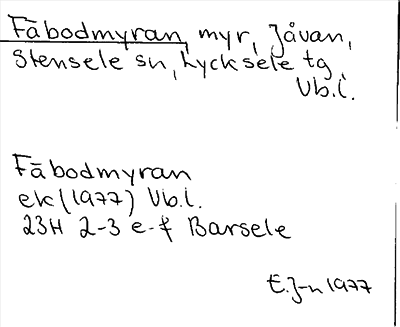 Fäbodmyran, myr, Jåvan,
Stensele sn, Lycksele tg
Vb.l.
Fäbodmyran
ek (1977) Vb.l.
23H 2-3 e-f Barsele
E.J-n 1977